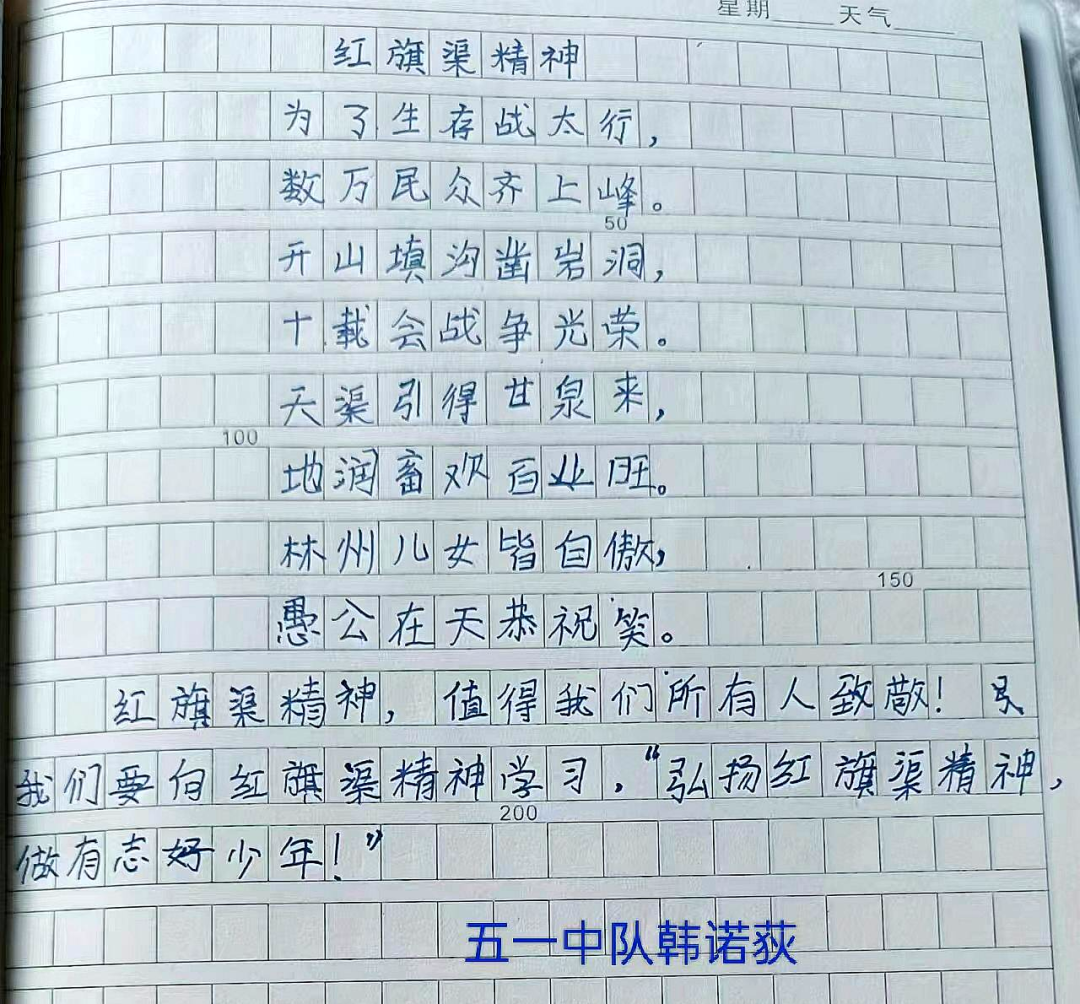 星期 天气
红旗渠精神
为了生存战太行，
数万民众齐上峰。
50
开山填沟凿岩洞，
十载会战争光荣。
天渠引得甘泉来，
100
地润畜欢百业旺。
林州儿女皆自傲，
150
愚公在天恭祝笑。
红旗渠精神，值得我们所有人致敬！
我们要向红旗渠精神学习，“弘扬红旗渠精神，
200
做有志好少年！”
五一中队韩诺荻